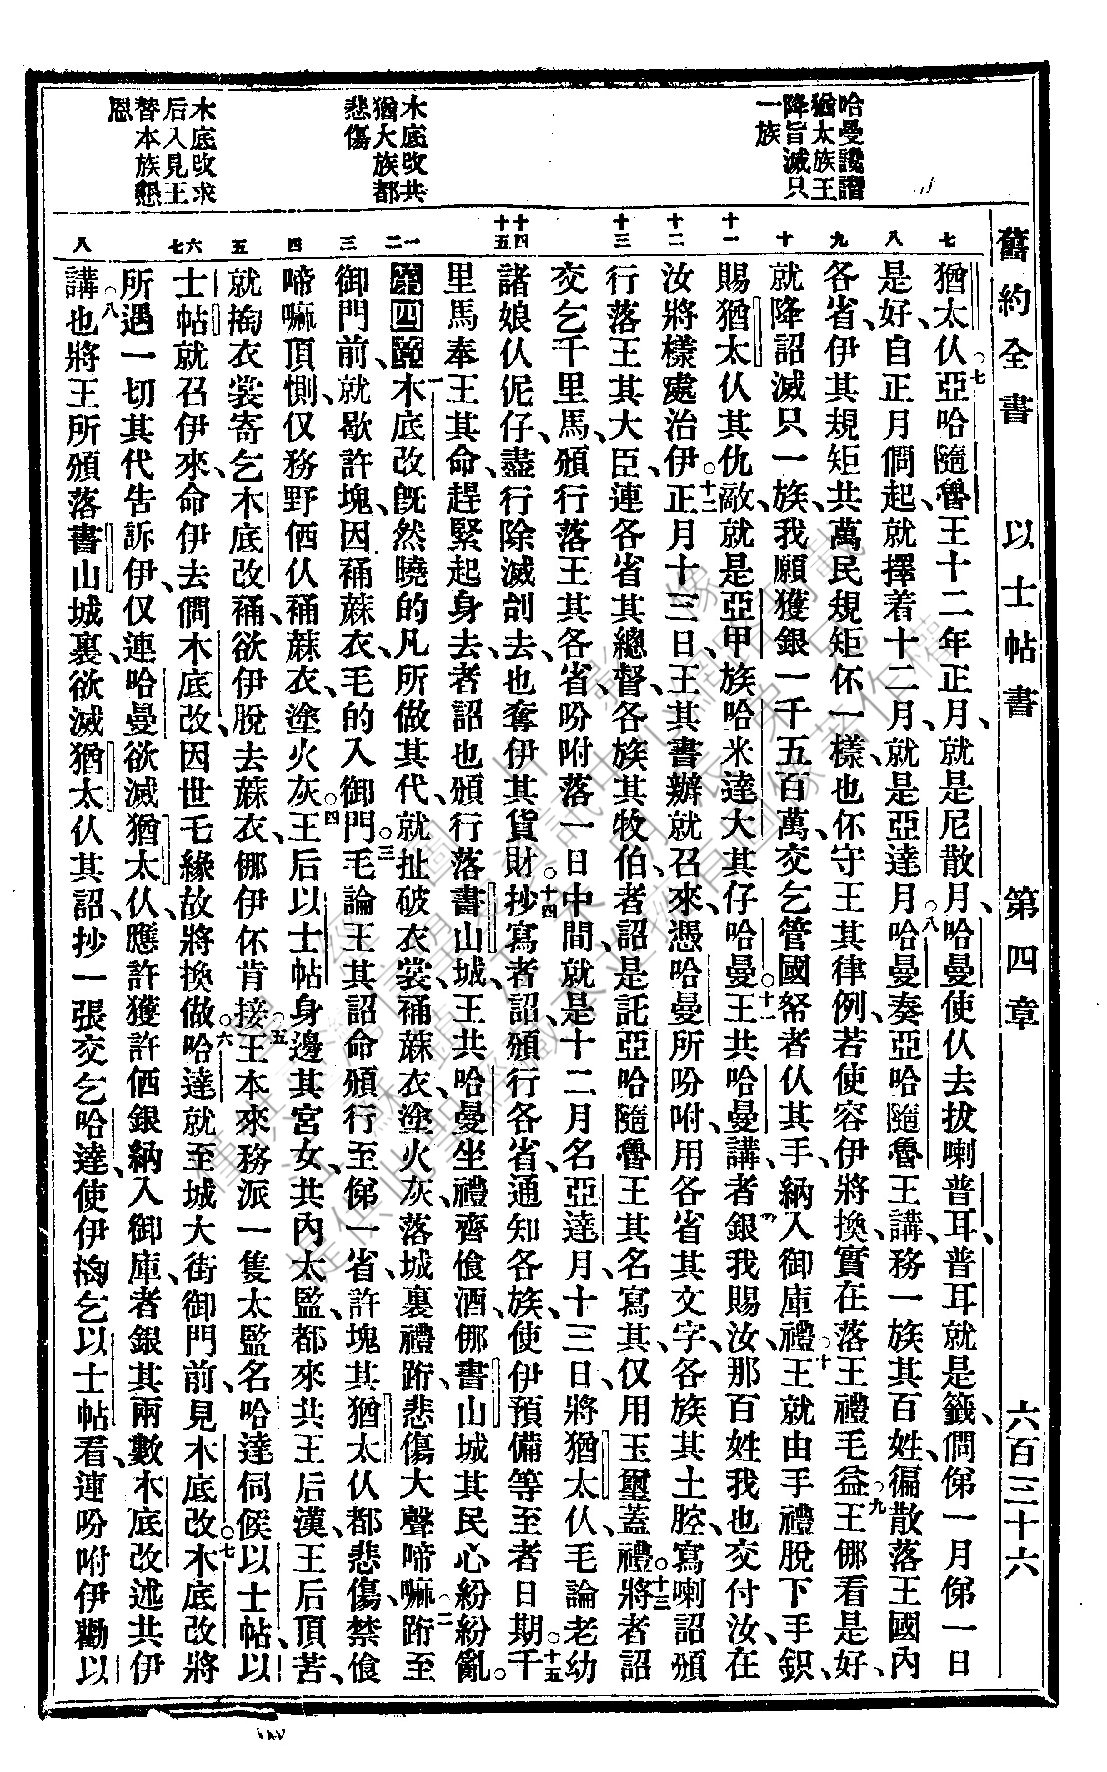 舊約全書 以士帖書 第四章 六百三十六
哈曼讒譖
猶太族王
降旨滅只
一族
木底改共
猶大族都
悲傷
木底改求
后入見王
替本族懇
恩
七 八 九 十 十一 十二 十三 十四 十五 一 二 三 四 五 六 七 八
猶太仈亞哈隨魯王十二年正月、就是尼散月、哈曼使仈去拔喇普耳、普耳就是籤、僩俤一月俤一日
是好、自正月僩起、就擇着十二月、就是亞達月。八哈曼奏亞哈隨魯王講、務一族其百姓、徧散落王國內
各省、伊其規矩共萬民規矩伓一樣、也伓守王其律例、若使容伊將換、實在落王禮毛益。九王㑚看是好、
就降詔滅只一族、我願獲銀一千五百萬、交乞管國帑者仈其手、納入御庫禮。十王就由手禮脫下手鈬、
賜猶太仈其仇敵、就是亞甲族哈米達大其仔哈曼。十一王共哈曼講、者銀我賜汝、那百姓我也交付汝、在
汝將樣處治伊。十二正月十三日、王其書辦就召來、憑哈曼所吩咐、用各省其文字、各族其土腔、寫喇詔頒
行落王其大臣、連各省其總督、各族其牧伯、者詔是託亞哈隨魯王其名寫其、仅用玉璽蓋禮。十三將者詔
交乞千里馬、頒行落王其各省、吩咐落一日中間、就是十二月名亞達月、十三日、將猶太仈、毛論老幼
諸娘仈伲仔、盡行除滅剖去、也奪伊其貨財。十四抄寫者詔、頒行各省、通知各族、使伊預備等至者日期。十五千
里馬奉王其命、趕緊起身去、者詔也頒行落書山城、王共哈曼坐禮齊飱酒、㑚書山城其民心紛紛亂。
第四章 一木底改旣然曉的凡所做其代、就扯破衣裳、䘄蔴衣、塗火灰、落城裏禮跔、悲傷大聲啼嘛。二跔至
御門前、就歇許塊、因䘄蔴衣、毛的入御門。三毛論王其詔命頒行至俤一省、許塊其猶太仈、都悲傷、禁飱
啼嘛頂惻、仅務野価仈䘄蔴衣、塗火灰。四王后以士帖身邊其宮女、共內太監、都來共王后漢、王后頂苦、
就掏衣裳寄乞木底改䘄、欲伊脫去蔴衣、㑚伊伓肯接。五王本來務派一隻太監名哈達、伺候以士帖、以
士帖就召伊來、命伊去僩木底改、因世乇緣故將換做。六哈達就至城大街御門前、見木底改。七木底改將
所遇一切其代告訴伊、仅連哈曼欲滅猶太仈、應許獲許価銀納入御庫、者銀其兩數、木底改述共伊
講。八也將王所頒落書山城裏、欲滅猶太仈其詔、抄一張交乞哈達、使伊掏乞以士帖看、連吩咐伊勸以